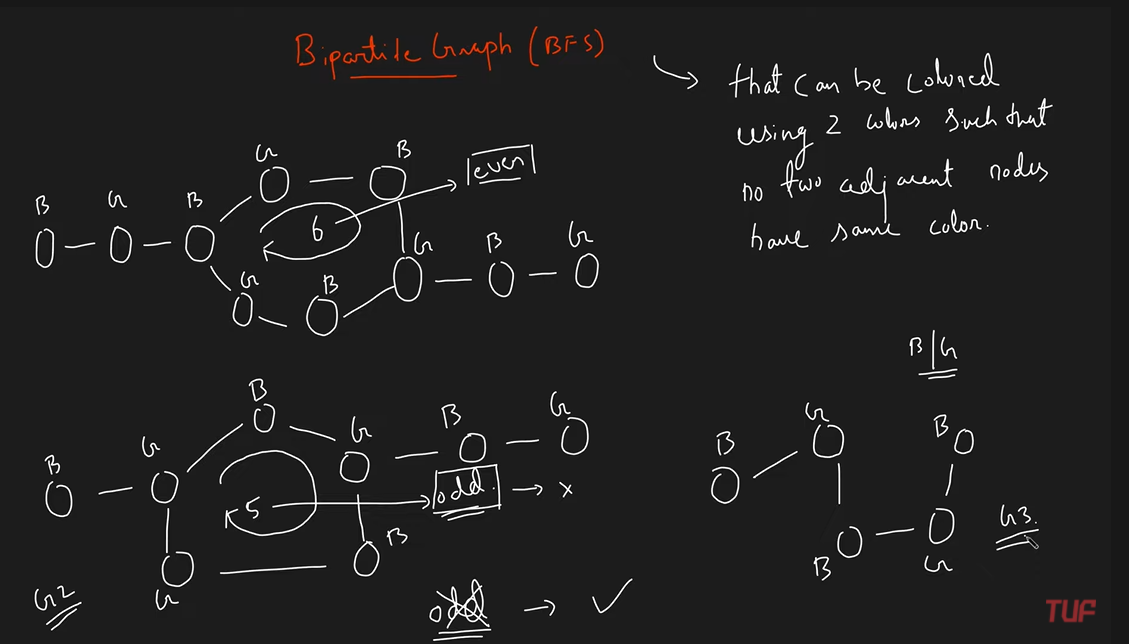 Bipartite Graph (BFS)
that can be colored
using 2 colors such that
no two adjacent nodes
have same color.
G
B
even
B
G
B
6
G
B
G
G
B
B/G
B
G
B
G
G
B
G
B
B
5
odd. → x
B
G3.
B
G
G2
G
odd → ✓
TUF